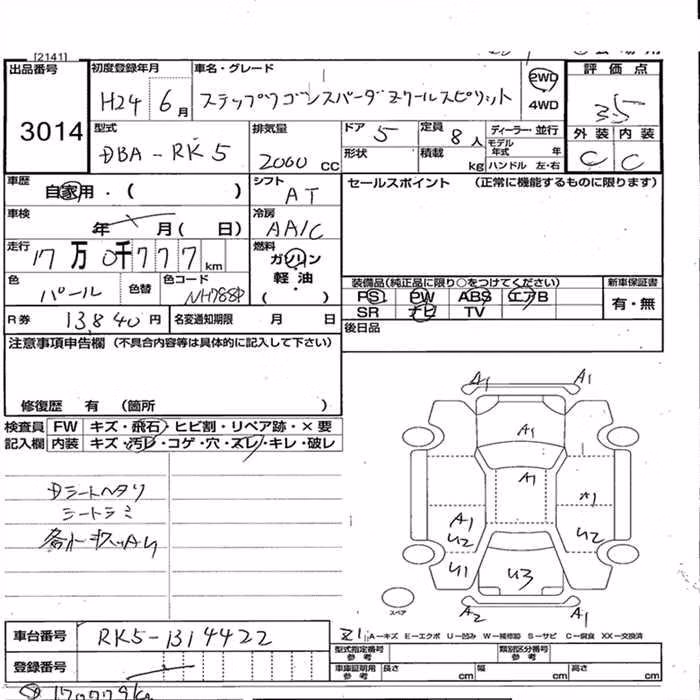 [2141]
出品番号
3014
初度登録年月
H24 6月
車名・グレード
ステップワゴンスパーダZクールスピリット
2WD
4WD
評価点
3.5
型式
DBA-RK5
排気量
2000 CC
ドア 5
形状
定員 8人
積載 kg
ディーラー・並行
モデル年式 年
ハンドル 左・右
外装 内装
C C
車歴
自家用・( )
シフト
AT
セールスポイント (正常に機能するものに限ります)
車検
年 月( 日)
冷房
AA/C
走行
17万0千777km
燃料
ガソリン
軽油
( ・ )
色
パール
色替
色コード
NH788P
装備品(純正品に限り○をつけてください)
新車保証書
PS PW ABS エアB
SR ナビ TV
有・無
R券 13,840円
名変通知期限 月 日
後日品
注意事項申告欄 (不具合内容等は具体的に記入して下さい)
修復歴 有 (箇所 )
検査員
記入欄
FW キズ・飛石・ヒビ割・リペア跡・×要
内装 キズ・汚レ・コゲ・穴・スレ・キレ・破レ
Dシートヘタリ
シートシミ
A1 A1
A1
A1
A1
A1
U2
U2
U1
U3
A2 A1
スペア
車台番号
RK5-1314422
A-キズ E-エクボ U-凹み W-補修跡 S-サビ C-腐食 XX-交換済
登録番号
型式指定番号
参考
類別区分番号
参考
車庫証明用
参考
長さ cm 幅 cm 高さ cm